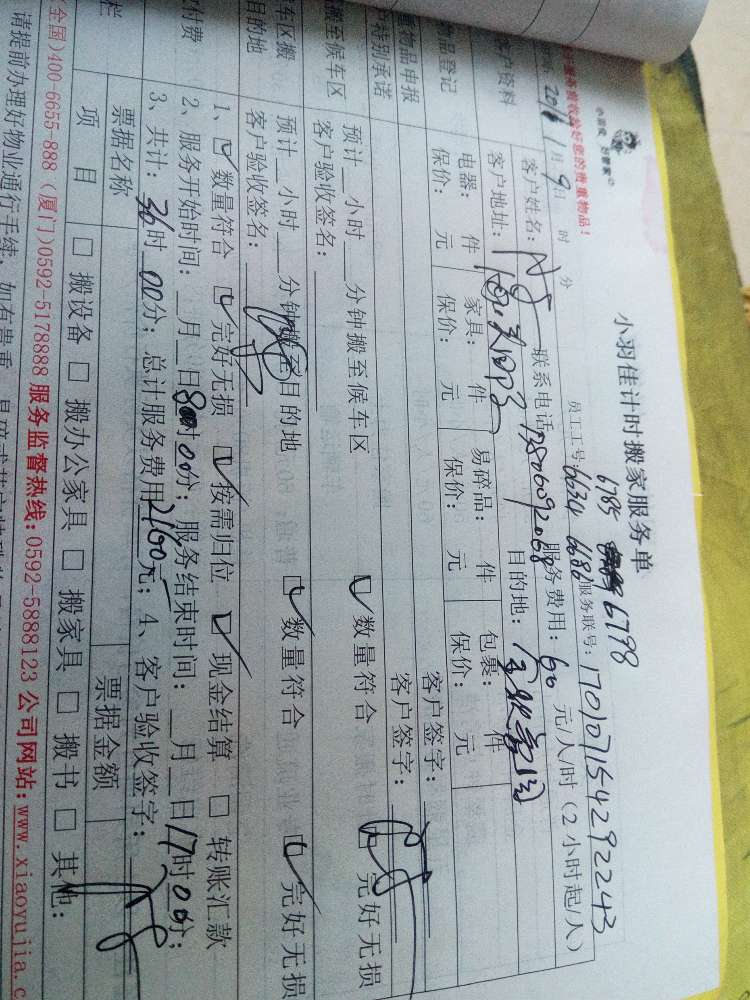 小羽佳计时搬家服务单
小羽佳 好管家
好您的贵重物品！
6785 6798
员工工号: 6634 6686 服务联号: 170107154292243
2016 月9日 时 分
服务费用: 60 元/人/时（2小时起/人）
客户资料 客户姓名: 联系电话
客户地址: 目的地:
物品登记 电器: 件 家具: 件 易碎品: 件 包裹: 件
物品申报 保价: 元 保价: 元 保价: 元 保价: 元
户特别承诺 客户签字:
客户签字:
搬至候车区 预计__小时__分钟搬至候车区 数量符合 完好无损
客户验收签名:
车区搬 预计__小时__分钟搬至目的地 数量符合 完好无损
目的地 客户验收签名:
付费 1、 数量符合 完好无损 按需归位 现金结算 □ 转账汇款
2、服务开始时间: __月__日8时00分; 服务结束时间: __月__日17时00分;
3、共计: 36时00分; 总计服务费用2160元; 4、客户验收签字:
栏 票据名称 票据金额
项 目 □ 搬设备 □ 搬办公家具 □ 搬家具 □ 搬书 □ 其他:
(全国)400-6655-888 (厦门)0592-5178888 服务监督热线: 0592-5888123 公司网站: www.xiaoyujia.c
请提前办理好物业通行手续, 如有贵重